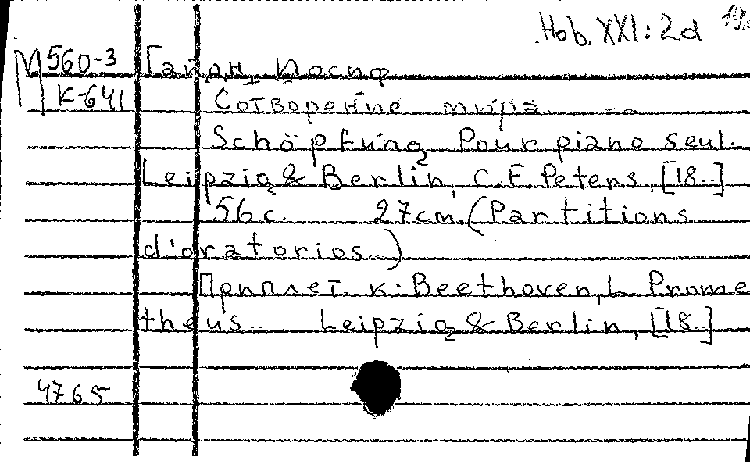 Hob. XXI: 2d
М 560-3 Гайдн, Иосиф
К-641 Сотворение мира
Schöpfung. Pour piano seul.
Leipzig & Berlin, C.F. Peters, [18..]
56 с. 27 cm. (Partitions
d'oratorios)
Приплет. к: Beethoven, L. Prome
theus. Leipzig & Berlin, [18..]
4765